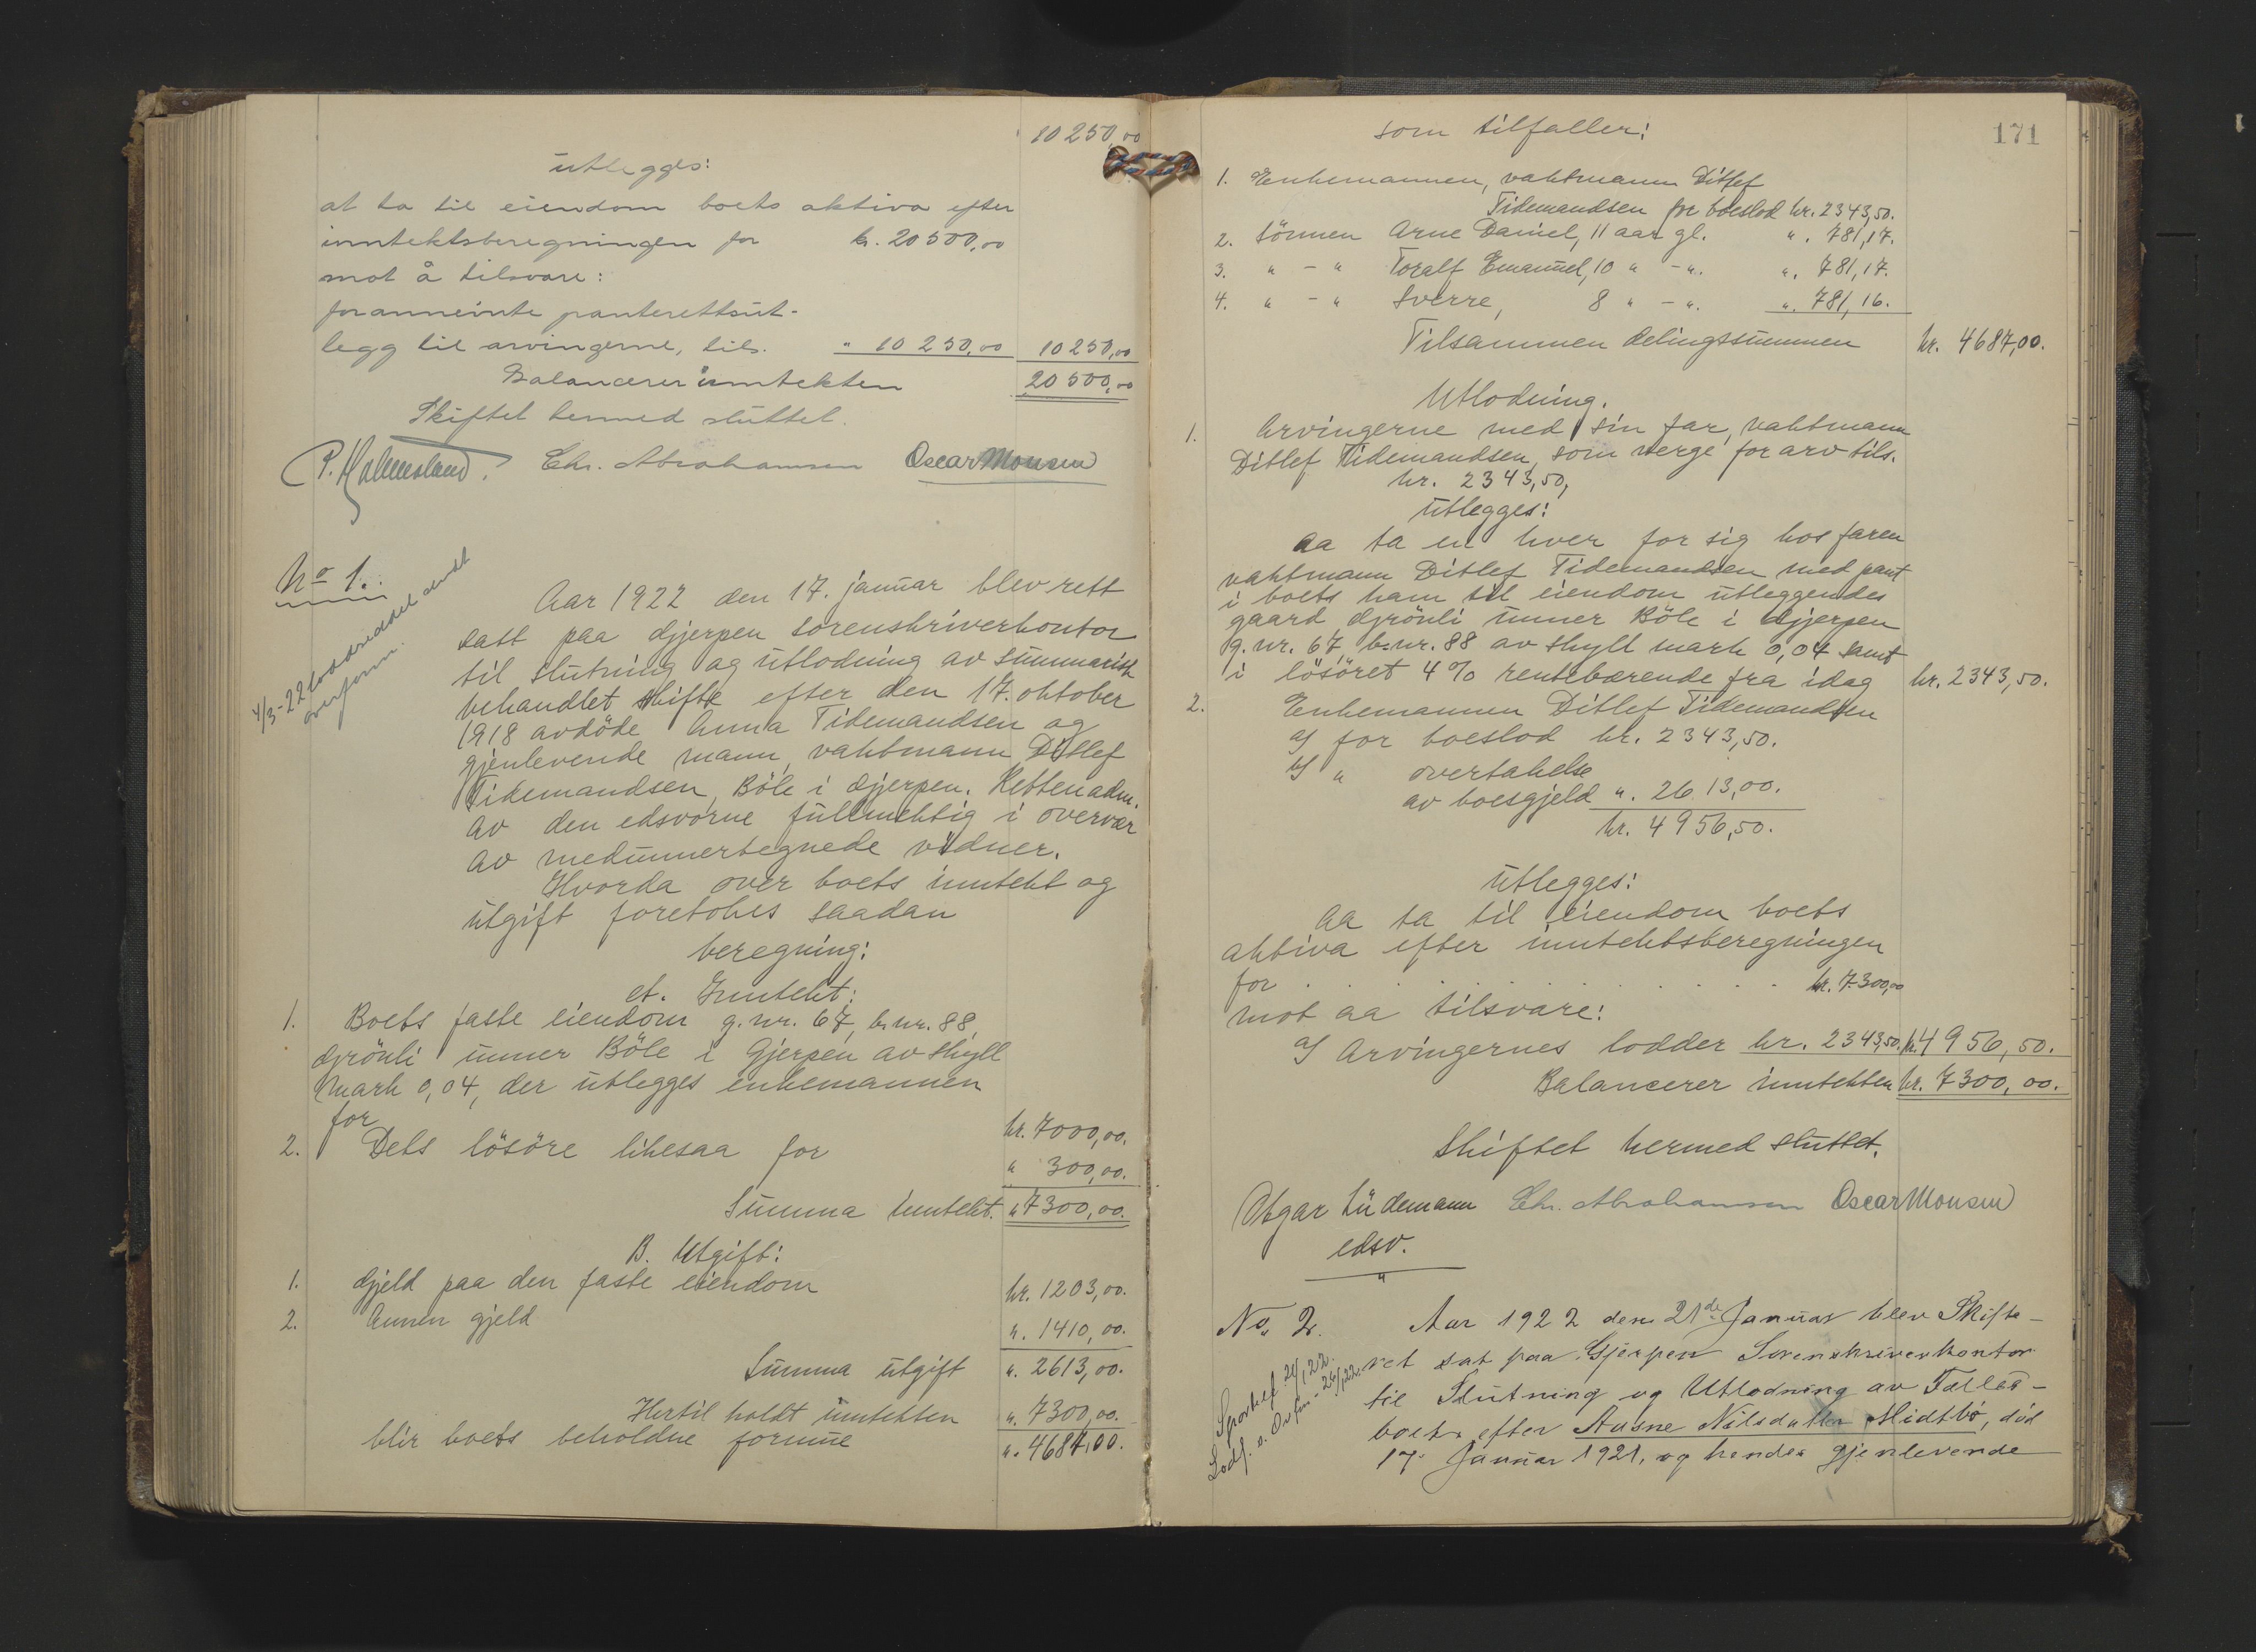 10 250,00
utlegges:
at ta til eiendom boets aktiva efter
inntektsberegningen for kr. 20 500,00
mot å tilsvare:
foranneinte panterettsut-
legg til arvingerne, tils. " 10 250,00 10 250,00
Balancerer inntekten 20 500,00
Skiftet hermed sluttet.
P. Holmesland. Chr. Abrahamsen Oscar Monsen
No 1.
4/3-22 loddseddel sendt
overform.
Aar 1922 den 17. januar blev rett
satt paa Gjerpen sorenskriverkontor
til slutning og utlodning av summarisk
behandlet skifte efter den 17. oktober
1918 avdöde Anna Tidemandsen og
gjenlevende mann, vaktmann Ditlef
Tidemandsen, Böle i Gjerpen. Retten adm.
av den edsvorne fullmektig i overvær
av medunnertegnede vidner.
Hvorda over boets inntekt og
utgift foretokes saadan
beregning:
A. Inntekt:
1. Boets faste eiendom g.nr. 67, b.nr. 88,
Grönli unner Böle i Gjerpen av skyll
mark 0,04, der utlegges enkemannen
for kr. 7000,00.
2. Dets lösöre likesaa for " 300,00.
Summa inntekt. " 7300,00.
B. Utgift:
1. Gjeld paa den faste eiendom kr. 1203,00.
2. Annen gjeld ". 1410,00.
Summa utgift ". 2613,00.
Hertil holdt inntekten ". 7300,00.
blir boets beholdne formue ". 4687,00.
171
som tilfaller:
1. Enkemannen, vaktmann Ditlef
Tidemandsen for boeslod kr. 2343,50.
2. Sönnen Arne Daniel, 11 aar gl. ". 781,17.
3. " - " Toralf Emanuel, 10 " - ". ". 781,17.
4. " - " Sverre, 8 " - ". ". 781,16.
Tilsammen delingssummen kr. 4687,00.
Utlodning.
1. Arvingerne med sin far, vaktmann
Ditlef Tidemandsen, som verge for arv tils.
kr. 2343,50,
utlegges:
Aa ta en hver for sig hos faren
vaktmann Ditlef Tidemandsen med pant
i boets ham til eiendom utleggendes
gaard Grönli unner Böle i Gjerpen
g.nr. 67, b.nr. 88 av skyll mark 0,04 samt
i lösöret 4% rentebærende fra idag kr. 2343,50.
2. Enkemannen Ditlef Tidemandsen
a/ for boeslod kr. 2343,50.
b/ " overtakelse
av boesgjeld ". 2613,00.
kr. 4956,50.
utlegges:
Aa ta til eiendom boets
aktiva efter inntektsberegningen
for . . . . . . . . . . kr. 7300,00
mot aa tilsvare:
a/ Arvingernes lodder kr. 2343,50. kr. 4956,50.
Balancerer inntekten kr. 7300,00.
Skiftet hermed sluttet.
Asgar Lüdemann Chr. Abrahamsen Oscar Monsen
edsv.
No. 2. Aar 1922 den 21de Januar blev Skifte-
ret sat paa Gjerpen Sorenskriverkontor
til Slutning og Utlodning av Fælles-
boet efter Aasne Nilsdatter Midtbö, död
17. Januar 1921, og hendes gjenlevende